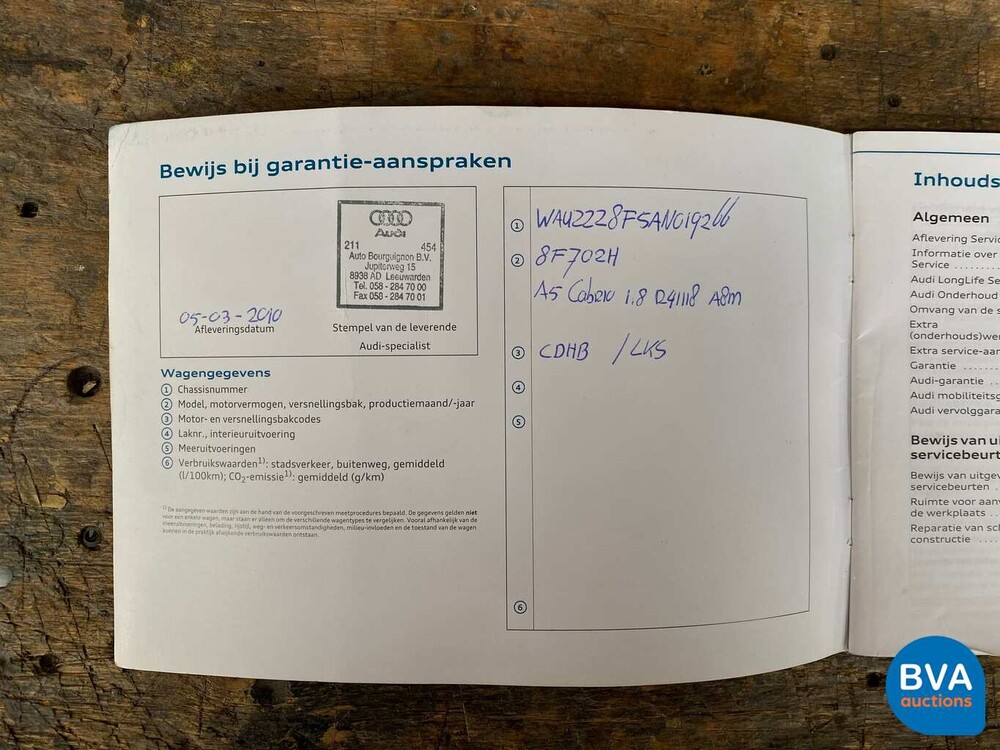 Bewijs bij garantie-aanspraken
Audi
211 454
Auto Bourguignon B.V.
Jupiterweg 15
8938 AD Leeuwarden
Tel. 058 - 284 70 00
Fax 058 - 284 70 01
05-03-2010
Afleveringsdatum
Stempel van de leverende
Audi-specialist
Wagengegevens
1 Chassisnummer
2 Model, motorvermogen, versnellingsbak, productiemaand/-jaar
3 Motor- en versnellingsbakcodes
4 Laknr., interieuruitvoering
5 Meeruitvoeringen
6 Verbruikswaarden1): stadsverkeer, buitenweg, gemiddeld
(l/100km); CO2-emissie1): gemiddeld (g/km)
1) De aangegeven waarden zijn aan de hand van de voorgeschreven meetprocedures bepaald. De gegevens gelden niet
voor een enkele wagen, maar staan er alleen om de verschillende wagentypes te vergelijken. Vooral afhankelijk van de
meeruitvoeringen, belading, rijstijl, weg- en verkeersomstandigheden, milieu-invloeden en de toestand van de wagen
kunnen in de praktijk afwijkende verbruikswaarden ontstaan.
1 WAUZZZ8F5AN019266
2 8F702H
A5 Cabrio 1.8 R4118 A8m
3 CDHB / LKS
4
5
6
Inhouds
Algemeen
Aflevering Servic
Informatie over
Service
Audi LongLife Se
Audi Onderhoud
Omvang van de s
Extra
(onderhouds)wer
Extra service-aan
Garantie
Audi-garantie
Audi mobiliteitsg
Audi vervolggara
Bewijs van ui
servicebeurt
Bewijs van uitgev
servicebeurten
Ruimte voor aanv
de werkplaats
Reparatie van sch
constructie
BVA
auctions